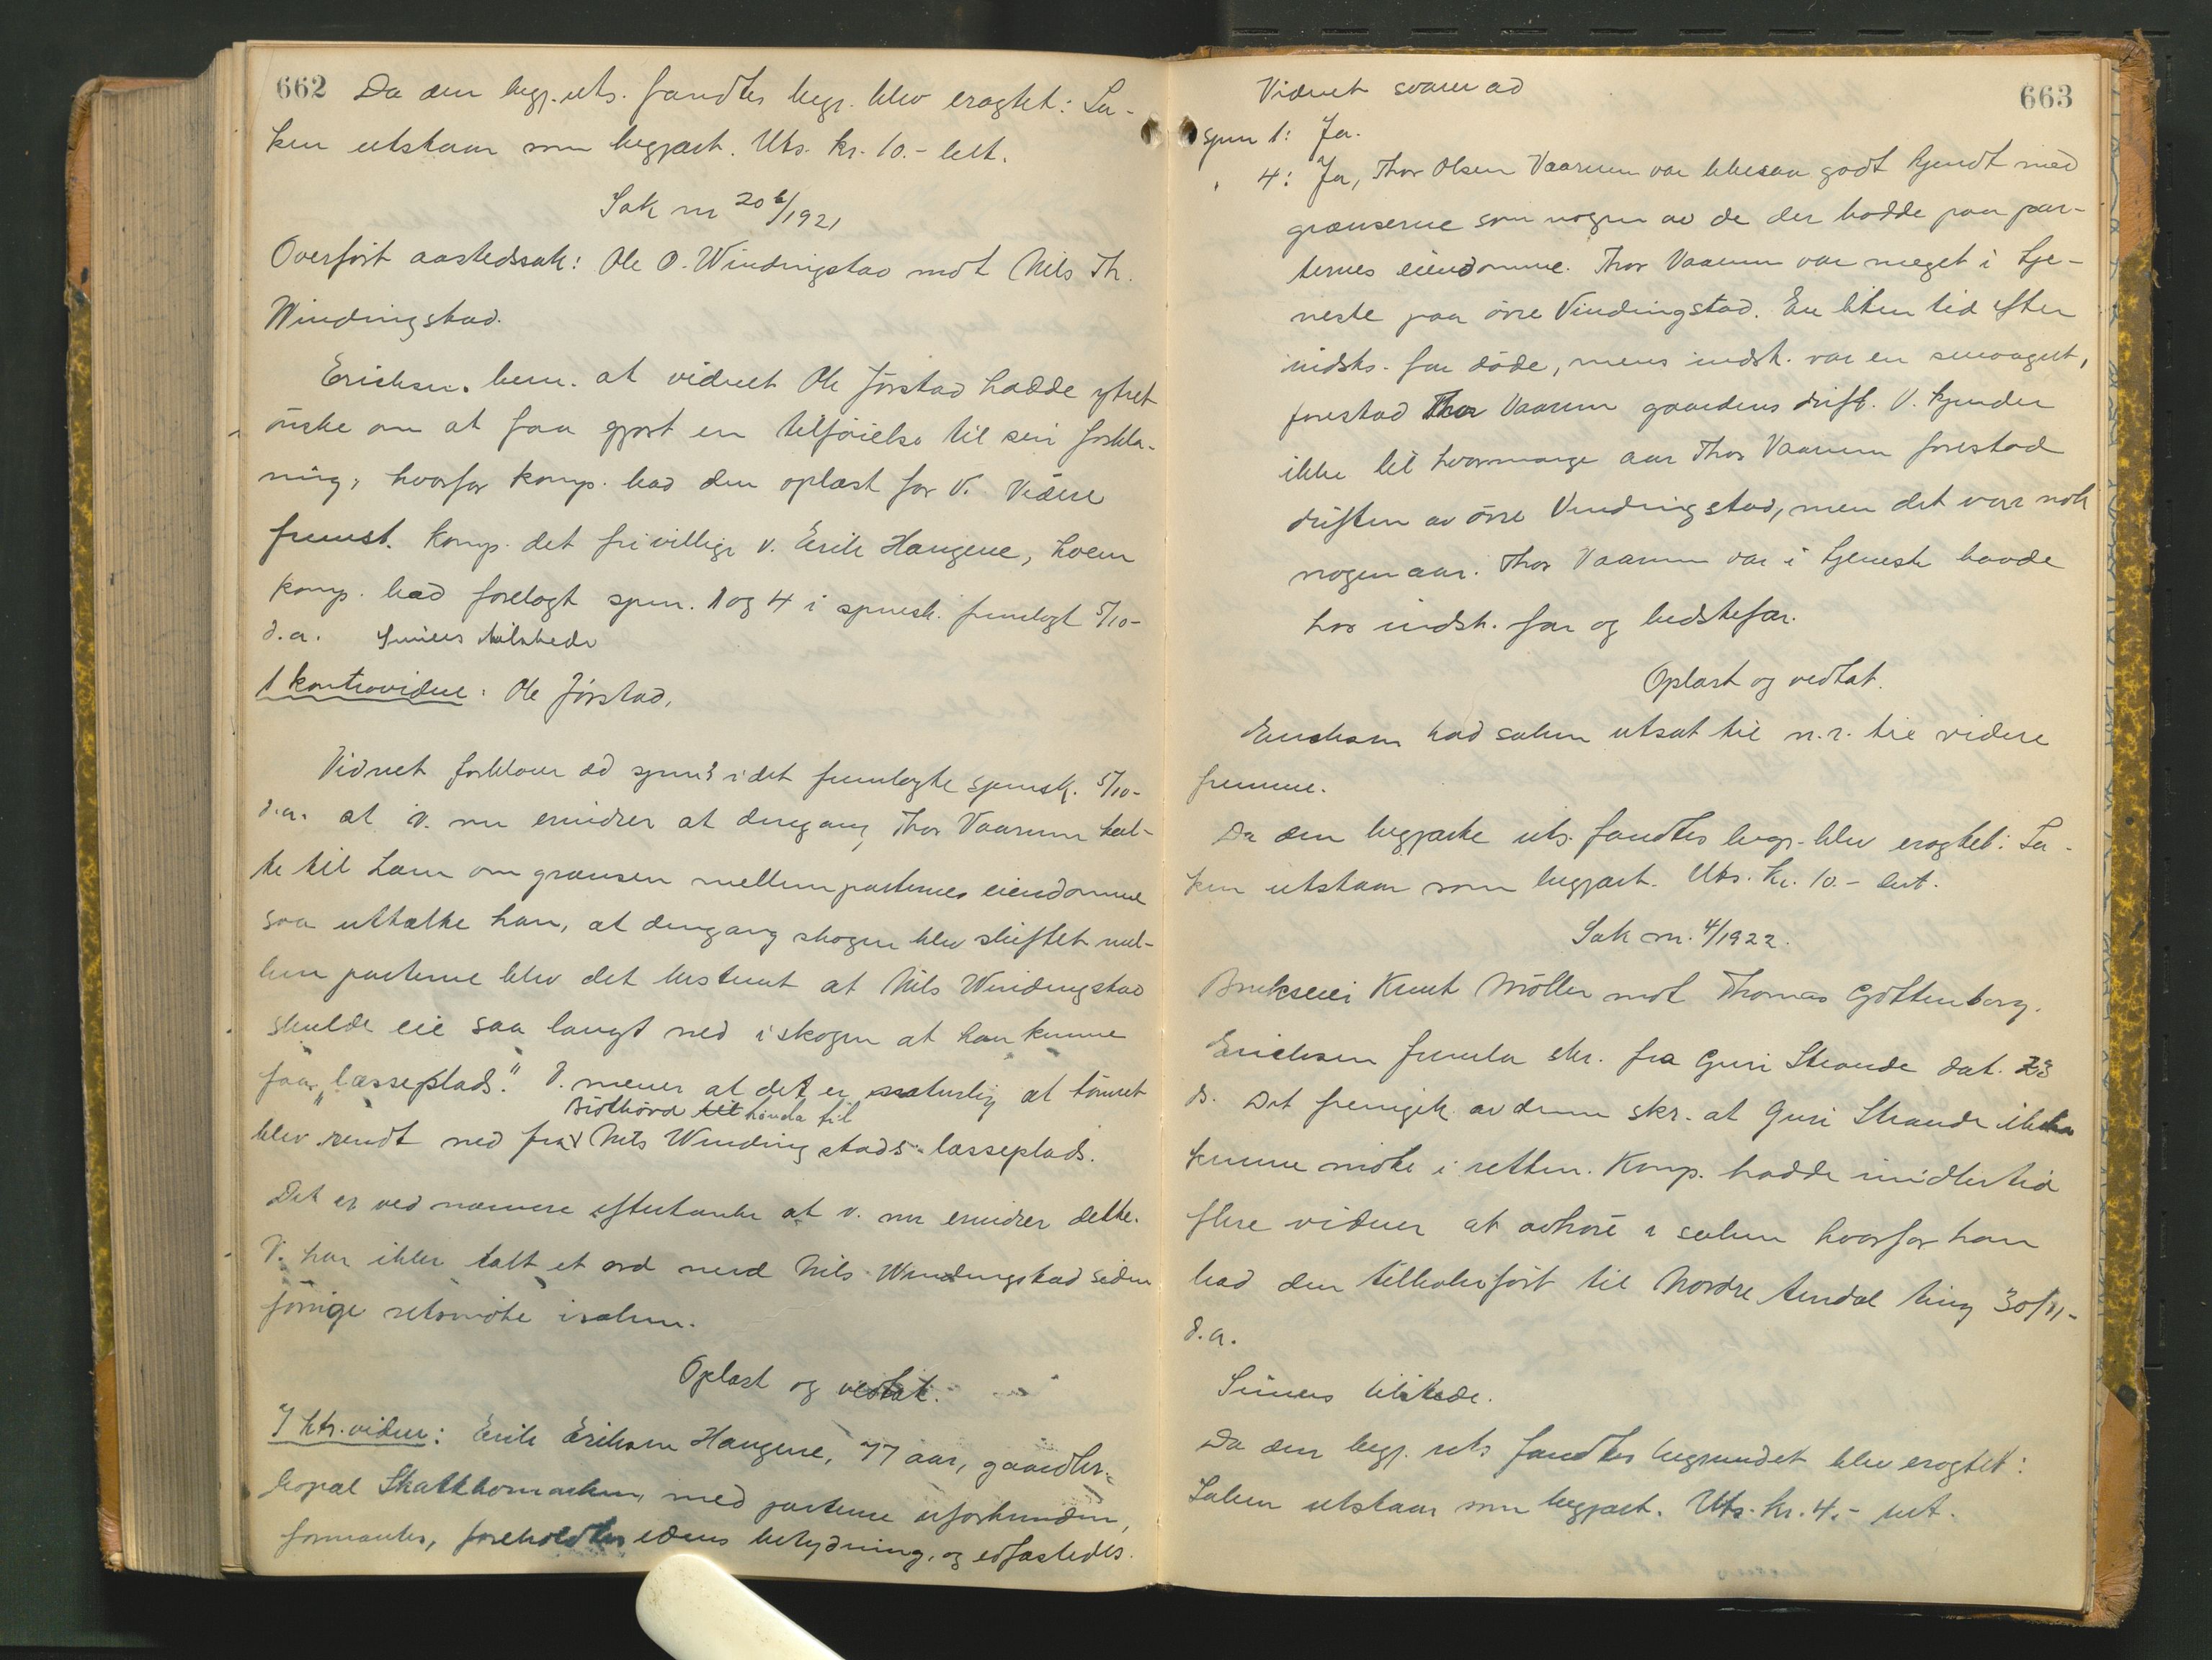 662 Da den begj. uts. fandtes begr. blev eragtet: Sa-
ken utstaar som begjært. Uts. kr. 10.- bet.
Sak nr 20 b/1921
Overført aastedssak: Ole O. Windingstad mot Nils Th.
Windingstad.
Erichsen bem. at vidnet Ole Jørstad hadde ytret
ønske om at faa gjort en tilføielse til sin forkla-
ring, hvorfor komp. bad den oplæst for V. Videre
fremst. komp. det frivillige v. Erik Haugene, hvem
komp. bad forelagt spm. 1 og 4 i spmsk. fremlagt 5/10-
d.a. Simers tilstede
1 kontravidne: Ole Jørstad.
Vidnet forklarer ad spm 3 i det fremlagte spmsk. 5/10-
d.a. at v. nu erindrer at dengang Thor Vaarum tal-
te til ham om grænsen mellem parternes eiendomme
saa uttalte han, at dengang skogen blev skiftet mel-
lem parterne blev det bestemt at Nils Windingstad
skulde eie saa langt ned i skogen at han kunne
faa "læsseplads." V. mener at det er naturlig at tømret
til hønda til
blev rendt ned fra Nils Windingstads læsseplads.
Det er ved nærmere eftertanke at v. nu erindrer dette.
V. har ikke talt et ord med Nils Windingstad siden
forrige retsmøte i saken.
Oplæst og vedtat.
7 ktr.vidne: Erik Eriksen Haugene, 77 aar, gaardbr.
bopæl med parterne uforbunden,
formantes, foreholdtes edens betydning, og edfæstedes.
663
Vidnet svarer ad
spm 1: Ja.
" 4: Ja, Thor Olsen Vaarum var likesaa godt kjendt med
grænserne som nogen av de der bodde paa par-
ternes eiendomme. Thor Vaarum var meget i tje-
neste paa øvre Vindingstad. En liten tid efter
indsts. far døde, mens indst. var en smaagut,
forestod Thor Vaarum gaardens drift. V. kjender
ikke til hvormange aar Thor Vaarum forestod
driften av øvre Vindingstad, men det var nok
nogen aar. Thor Vaarum var i tjeneste baade
hos indst. far og bedstefar.
Oplæst og vedtat.
Erichsen bad saken utsat til n.r. til videre
fremme.
Da den begjærte uts. fandtes begr. blev eragtet: Sa-
ken utstaar som begjært. Uts. kr. 10.- bet.
Sak nr. 4/1922.
Brukseier Knut Møller mot Thomas Gottenborg.
Erichsen fremla skr. fra Guri Strande dat. 23
ds. Det fremgik av denne skr. at Guri Strande ikke
kunne møte i retten. Komp. hadde imidlertid
flere vidner at avhøre i saken hvorfor han
bad den tilbakeført til Nordre Aurdal ting 30/11-
d.a.
Simers tilstede.
Da den begj. uts fandtes begrundet blev eragtet:
Saken utstaar som begjært. Uts. kr. 4,- bet.